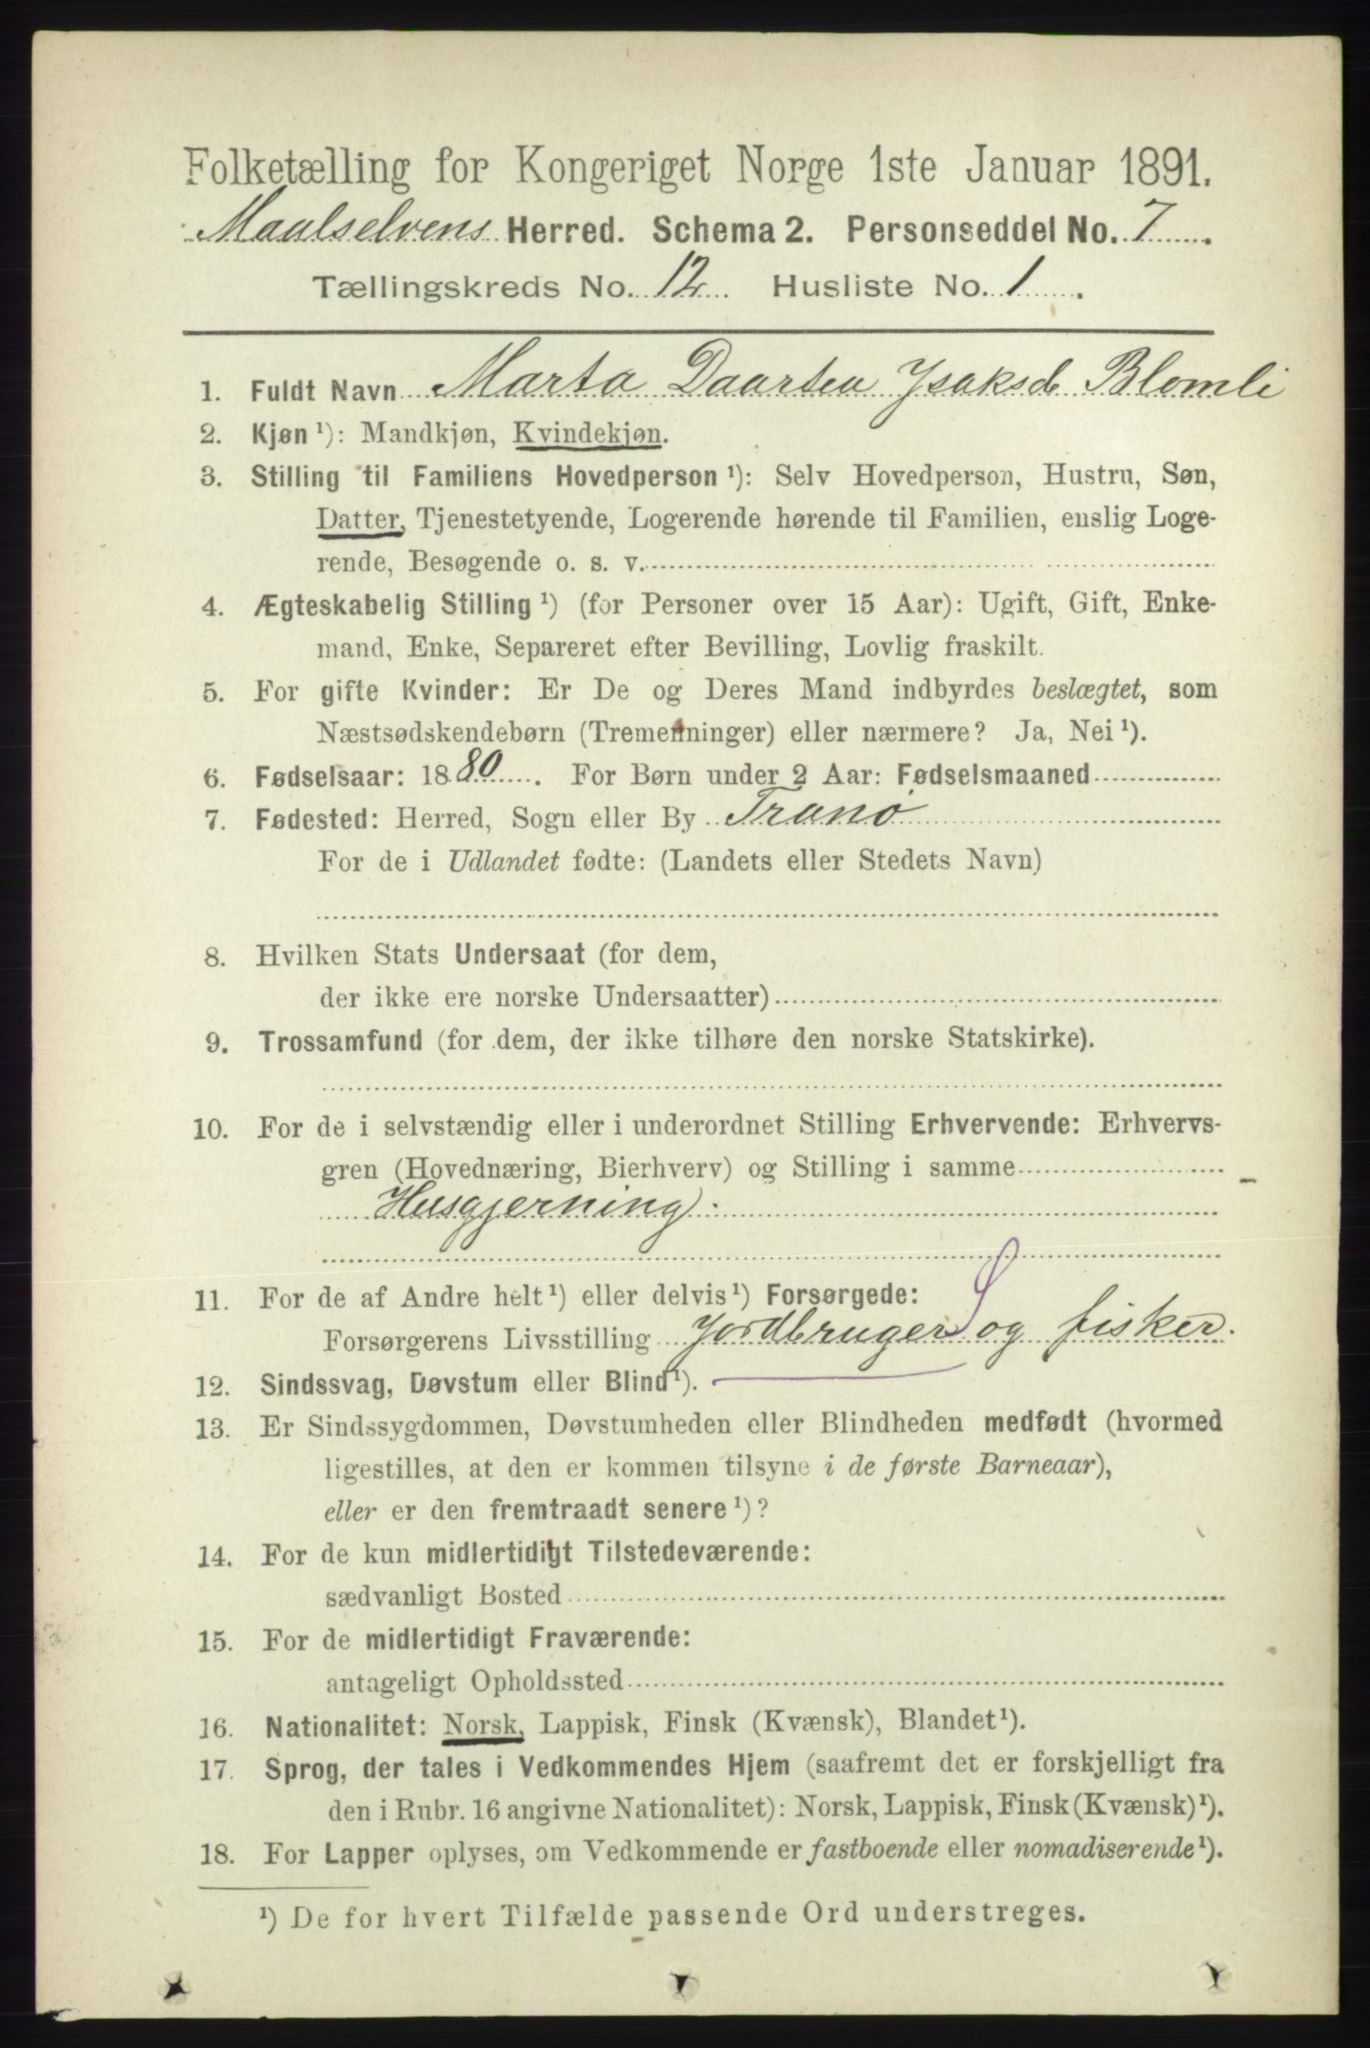 Folketælling for Kongeriget Norge 1ste Januar 1891.
Maalselvens Herred. Schema 2. Personseddel No. 7.
Tællingskreds No. 12 Husliste No. 1.
1. Fuldt Navn Marta Daartea Ysaksd Blomli
2. Kjøn ¹): Mandkjøn, Kvindekjøn.
3. Stilling til Familiens Hovedperson ¹): Selv Hovedperson, Hustru, Søn,
Datter, Tjenestetyende, Logerende hørende til Familien, enslig Loge-
rende, Besøgende o. s. v.
4. Ægteskabelig Stilling ¹) (for Personer over 15 Aar): Ugift, Gift, Enke-
mand, Enke, Separeret efter Bevilling, Lovlig fraskilt.
5. For gifte Kvinder: Er De og Deres Mand indbyrdes beslægtet, som
Næstsødskendebørn (Tremenninger) eller nærmere? Ja, Nei ¹).
6. Fødselsaar: 1880. For Børn under 2 Aar: Fødselsmaaned
7. Fødested: Herred, Sogn eller By Tranø
For de i Udlandet fødte: (Landets eller Stedets Navn)
8. Hvilken Stats Undersaat (for dem,
der ikke ere norske Undersaatter)
9. Trossamfund (for dem, der ikke tilhøre den norske Statskirke).
10. For de i selvstændig eller i underordnet Stilling Erhvervende: Erhvervs-
gren (Hovednæring, Bierhverv) og Stilling i samme
Husgjerning.
11. For de af Andre helt ¹) eller delvis ¹) Forsørgede:
Forsørgerens Livsstilling Jordbruger og fisker.
12. Sindssvag, Døvstum eller Blind ¹).
13. Er Sindssygdommen, Døvstumheden eller Blindheden medfødt (hvormed
ligestilles, at den er kommen tilsyne i de første Barneaar),
eller er den fremtraadt senere ¹)?
14. For de kun midlertidigt Tilstedeværende:
sædvanligt Bosted
15. For de midlertidigt Fraværende:
antageligt Opholdssted
16. Nationalitet: Norsk, Lappisk, Finsk (Kvænsk), Blandet ¹).
17. Sprog, der tales i Vedkommendes Hjem (saafremt det er forskjelligt fra
den i Rubr. 16 angivne Nationalitet): Norsk, Lappisk, Finsk (Kvænsk) ¹).
18. For Lapper oplyses, om Vedkommende er fastboende eller nomadiserende ¹).
¹) De for hvert Tilfælde passende Ord understreges.